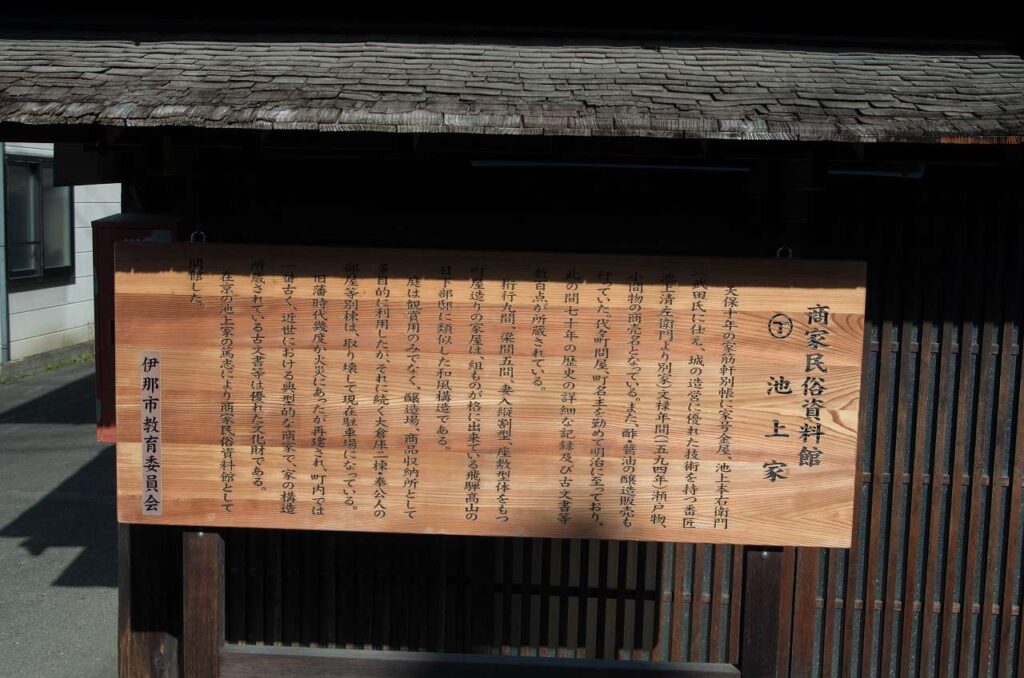 商家民俗資料館
池上家
天保十年の宗筋軒別帳に家号金屋、池上本右衛門
(武田氏に仕え、城の造営に優れた技術を持つ番匠
池上清左衛門より別家)文禄年間(一五九四年)瀬戸物、
小間物の商売名となっている。また、酢・醤油の醸造販売も
行っていた。代々町問屋、町名主を勤めて明治に至っており、
此の間七十年の歴史の詳細な記録及び古文書等
数百点が所蔵されている。
桁行九間、梁間五間、妻入縦割型、座敷型体をもつ
町屋造りの家屋は、組ものが格に出来ている飛騨高山の
日下部邸に類似した和風構造である。
庭は観賞用のみでなく、醸造場、商品収納所として
多目的に利用したが、それに続く大倉庫二棟奉公人の
部屋等別棟は、取り壊して現在駐車場になっている。
旧藩時代幾度か火災にあったが再建され、町内では
一番古く、近世における典型的な商家で、家の構造
所蔵されている古文書等は優れた文化財である。
在京の池上家の篤志により商家民俗資料館として
開館した。
伊那市教育委員会